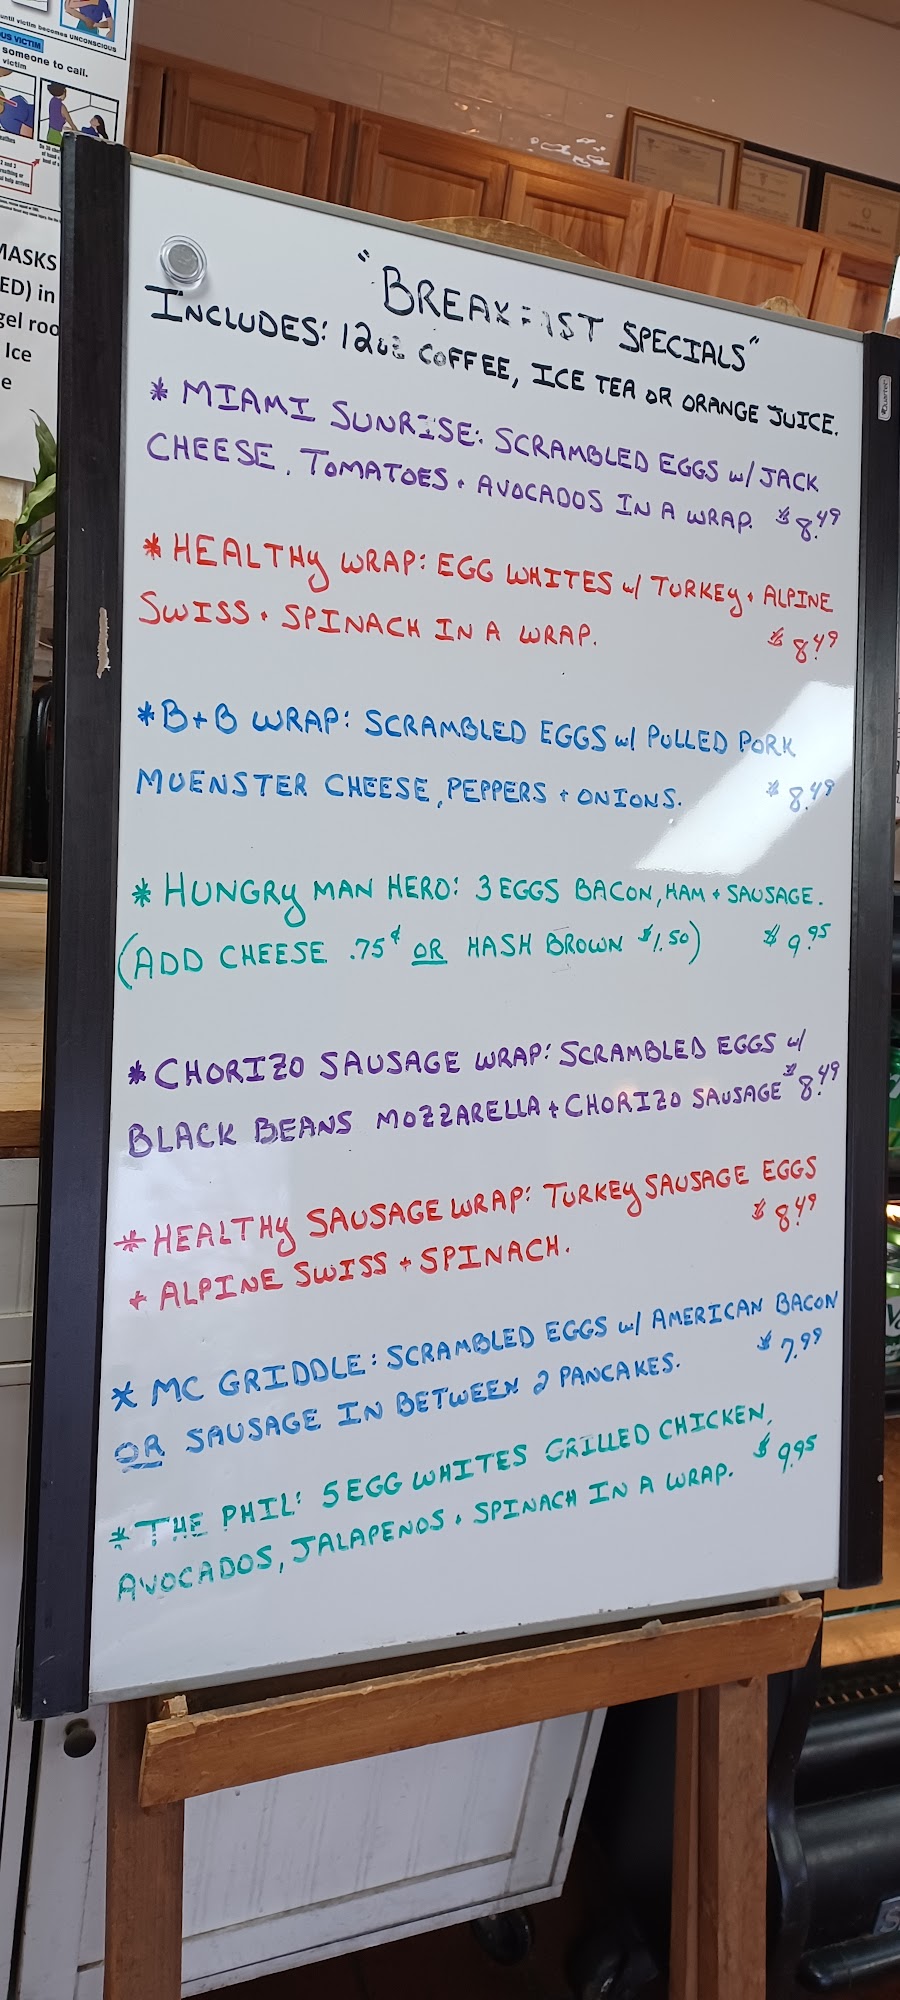 until victim becomes UNCONSCIOUS
US VICTIM
someone to call.
victim
MASKS
ED) in
gel roo
Ice
e
"BREAKFAST SPECIALS"
INCLUDES: 12oz COFFEE, ICE TEA OR ORANGE JUICE.
* MIAMI SUNRISE: SCRAMBLED EGGS w/ JACK
CHEESE, TOMATOES + AVOCADOS IN A WRAP. $8.49
* HEALTHY WRAP: EGG WHITES w/ TURKEY + ALPINE
SWISS + SPINACH IN A WRAP. $8.49
* B+B WRAP: SCRAMBLED EGGS w/ PULLED PORK
MUENSTER CHEESE, PEPPERS + ONIONS. $8.49
* HUNGRY MAN HERO: 3 EGGS BACON, HAM + SAUSAGE.
(ADD CHEESE .75¢ OR HASH BROWN $1.50) $9.95
* CHORIZO SAUSAGE WRAP: SCRAMBLED EGGS w/
BLACK BEANS MOZZARELLA + CHORIZO SAUSAGE $8.49
* HEALTHY SAUSAGE WRAP: TURKEY SAUSAGE EGGS
+ ALPINE SWISS + SPINACH. $8.49
* MC GRIDDLE: SCRAMBLED EGGS w/ AMERICAN BACON
OR SAUSAGE IN BETWEEN 2 PANCAKES. $7.99
* THE PHIL: 5 EGG WHITES GRILLED CHICKEN,
AVOCADOS, JALAPENOS + SPINACH IN A WRAP. $9.95
Quartet